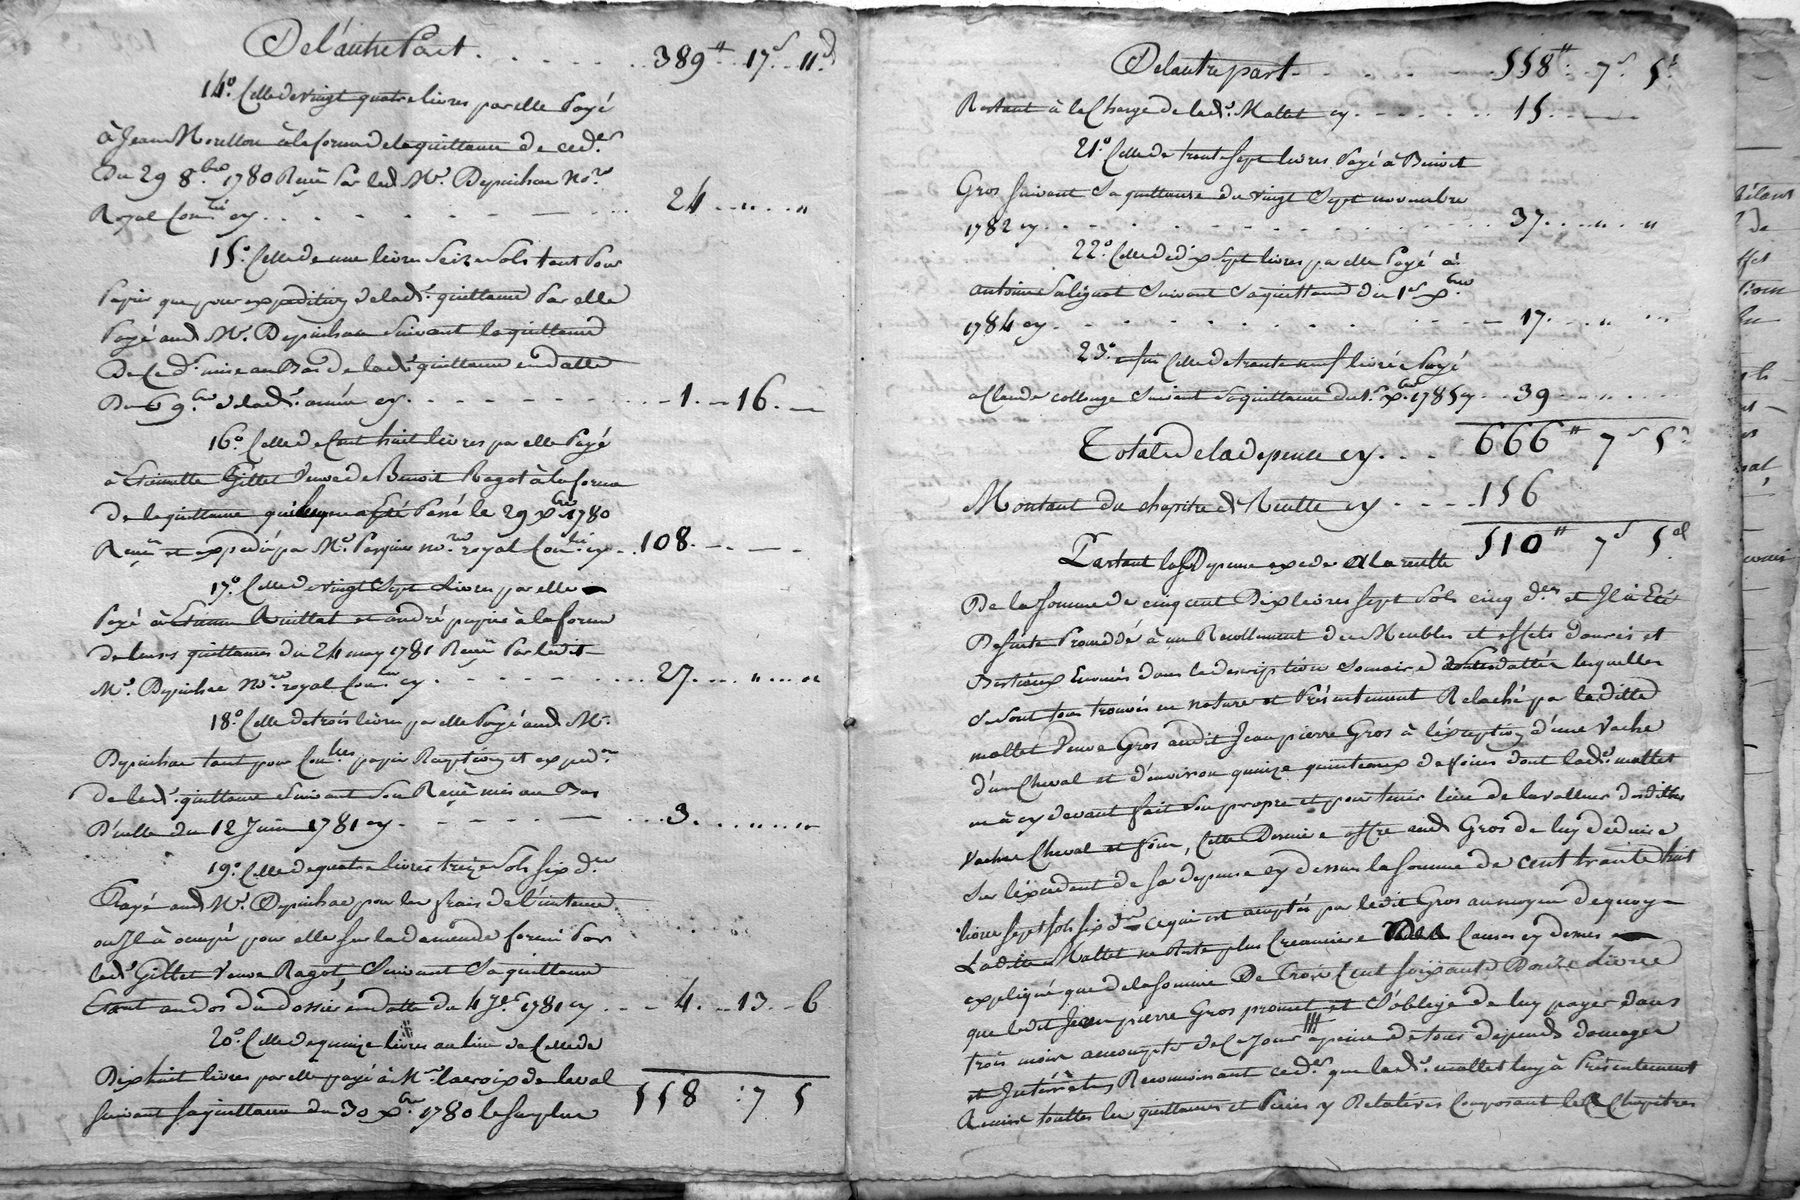 De l'autre Part . . . . . . . 389# .. 17s .. 11d
14° Celle de vingt quatre livres par elle Payé
à Jean Morillon à la forme de la quittance de ced.
Du 29 8.bre 1780 Par led M.e Depinhac No.re
Royal ey . . . . . . . 24 .. " .. "
15° Celle de une livre Seize Sols tant Pour
Papier que pour expedition de lad. quittance Par elle
Payé aud M.e Depinhac Suivant la quittance
De Ced. mise au Bas de lad. quittance en datte
Du 6 9.bre de lad. année ey . . . . . . . 1 .. 16 ..
16° Celle de Cent huit livres par elle Payé
à Gillet Veuve de Benoit Ragot à la forme
de la quittance Passé le 29 x.bre 1780
et expedié par M.e no.re royal ey .. 108 . . .
17° Celle de vingt Sept Livres par elle
Payé à et andré papier à la forme
de leurs quittances du 24 may 1781 Par ledit
M.e Depinhac No.re royal ey . . . . . . . 27 .. " .. "
18° Celle de trois livres par elle Payé aud M.e
Depinhac tant pour papier Reception et exped.on
de lad. quittance Suivant Son mis au Bas
D'icelle du 12 Juin 1781 ey . . . . . . . 3 .. " .. "
19° Celle de quatre livres treize Sols Six d.ers
Payé aud M.e Depinhac pour les frais de l'instance
ou Il à occupé pour elle sur la demande formé Par
lad. Gillet Veuve Ragot, Suivant Sa quittance
Etant au dos du dossier en datte du 4 1781 ey .. 4 .. 13 .. 6
20° Celle de quinze livres au lieu de Celle de
Dix huit livres par elle payé à M.r lacroix de laval
suivant sa quittance du 30 x.bre 1780 le surplus 558 : 7 5
De lautre part . . . . . . . 558# .. 7s .. 5d
Restant à la Charge de lad. Mallet ey . . . . . . . 15 . . .
21° Celle de trente Sept livres Payé à Benoit
Gros Suivant Sa quittance du vingt Sept novembre
1782 ey . . . . . . . 37 .. " .. "
22° Celle de dix sept livres par elle Payé à
antoine Salignat Suivant Sa quittance du 1er x.bre
1784 ey . . . . . . . 17 .. " ..
23° Celle de trente neuf livres Payé
a Claude collonge Suivant Sa quittance du 1.er x.bre 1785 ey .. 39 . . .
Total de la depense ey . . . 666# 7s 5d
Montant du chapitre de Recette ey . . . . 156
510# 7s 5d
Partant la Depense excede a la recette
De la somme de cinq cent Dix livres Sept Sols cinq d.ers et Il à Eté
De suite Procédé à un Recollement des Meubles et effets danrés et
Bestiaux Enoncés dans la description Somaire lesquelles
Se sont tous trouvés en nature et Présentement Relaché par la ditte
mallet Veuve Gros audit Jean pierre Gros à l'éxception d'une Vache
d'un Cheval et d'environ quinze quinteaux de foins dont lad. mallet
a cy devant fait Son propre et pour tenir lieu de la valleur desdittes
Vaches Cheval et foin, Cette Derniere offre aud Gros de luy déduire
Sur l'éxcedent de Sa depense cy dessus la Somme de cent trante huit
livres Sept Sols Six d.rs ce qui est accepté par ledit Gros au moyen de quoy
Ladite Mallet ne Reste plus Creanciere Causes cy dessus
expliqué que de la Somme De Trois Cent Soixante Douze Livres
que ledit Jean pierre Gros promet et S'oblige de luy payer dans
trois mois à compter de Ce Jour à peine de tous depends domages
et Intérêts, Reconnoissant ced. que lad. mallet luy à Présentement
Remise touttes les quittances et Pieces y Relatives Composant les Chapitres